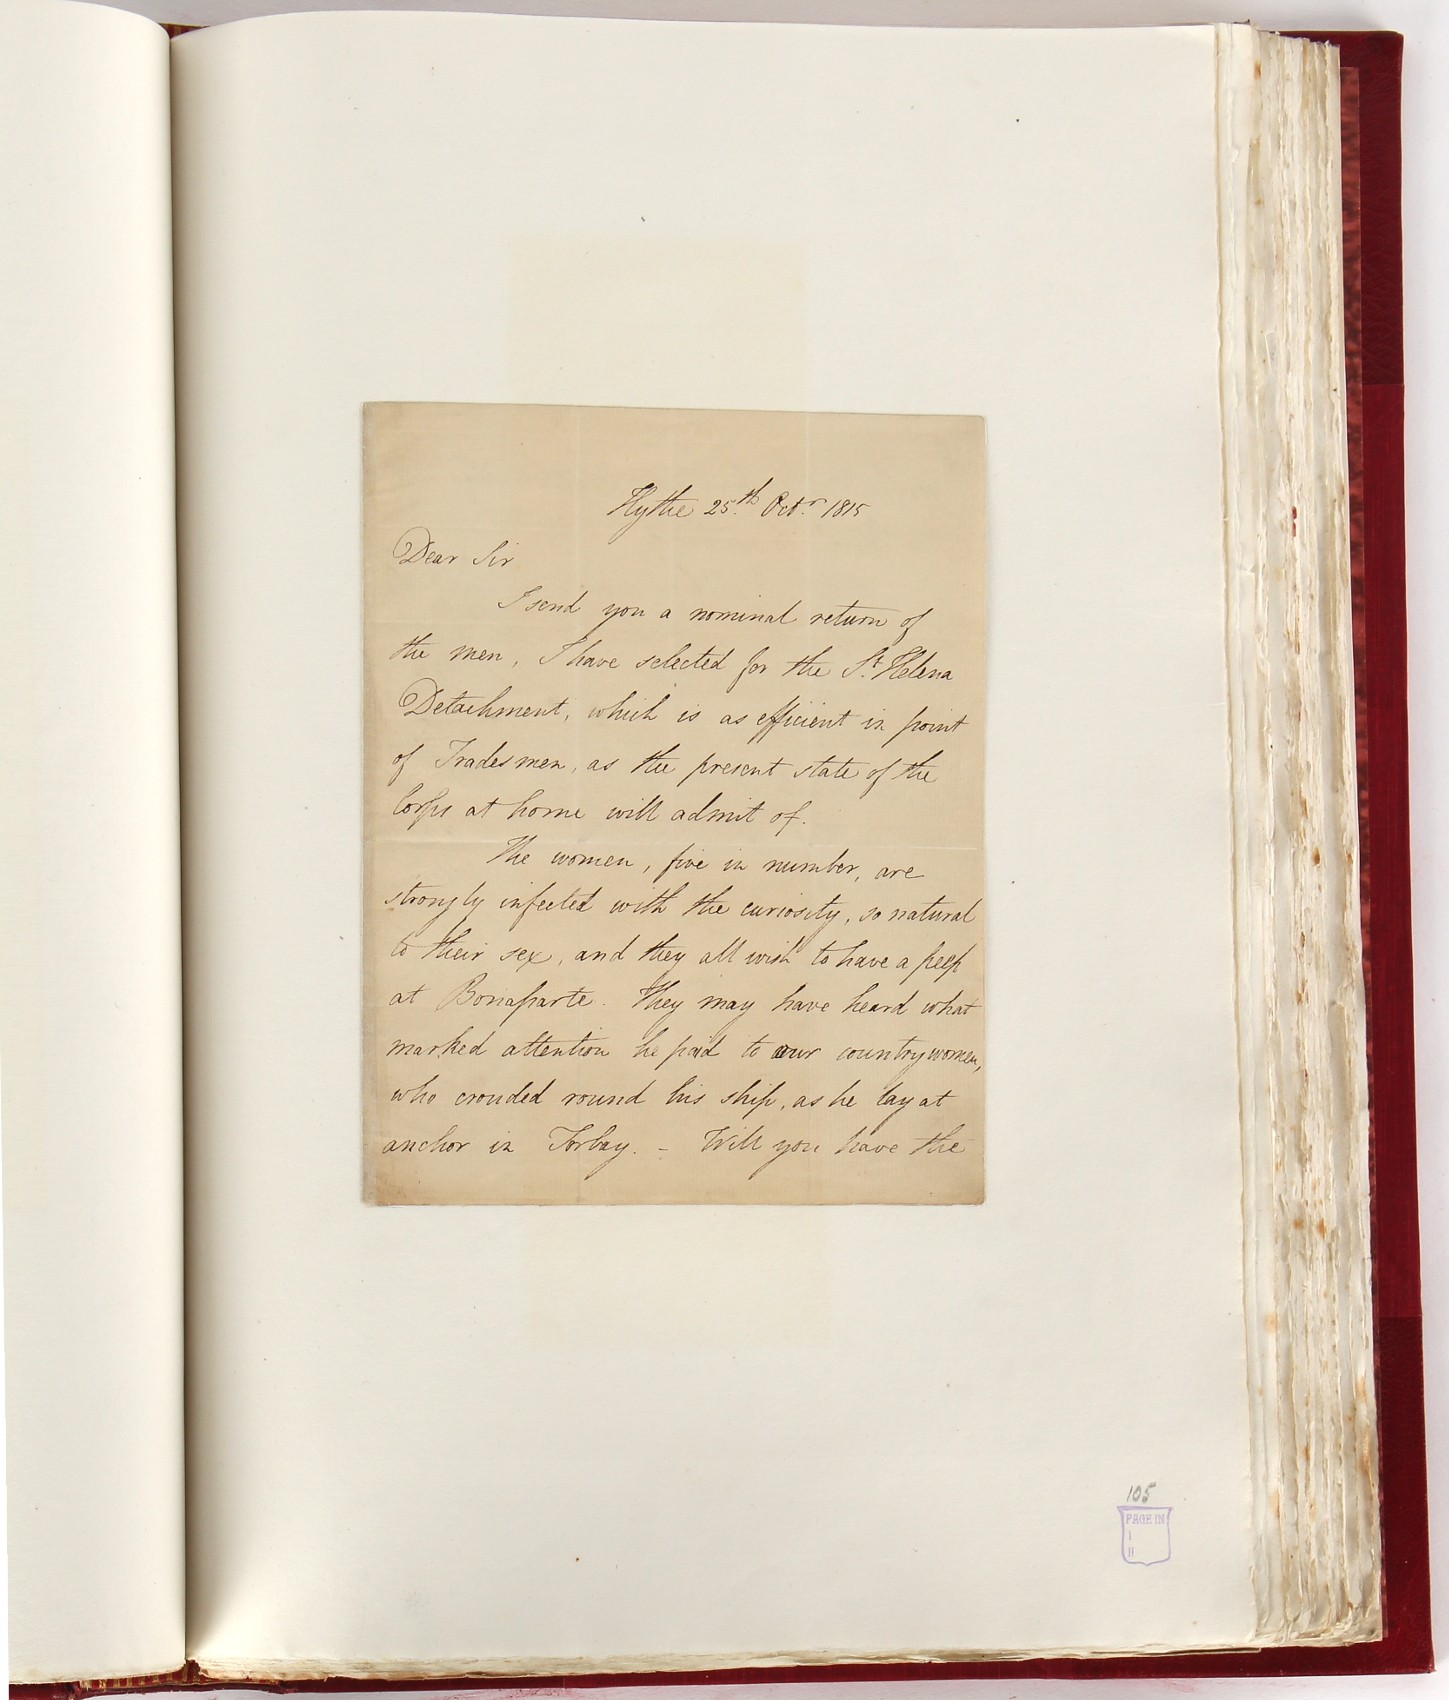 Hythe 25.th Octr. 1815
Dear Sir
I send you a nominal return of
the men, I have selected for the St. Helena
Detachment, which is as efficient in point
of Tradesmen, as the present state of the
Corps at home will admit of.
The women, five in number, are
strongly infected with the curiosity, so natural
to their sex, and they all wish to have a peep
at Bonaparte. They may have heard what
marked attention he paid to our countrywomen,
who crouded round his ship, as he lay at
anchor in Torbay. - Will you have the
105
PAGE IN
I
II